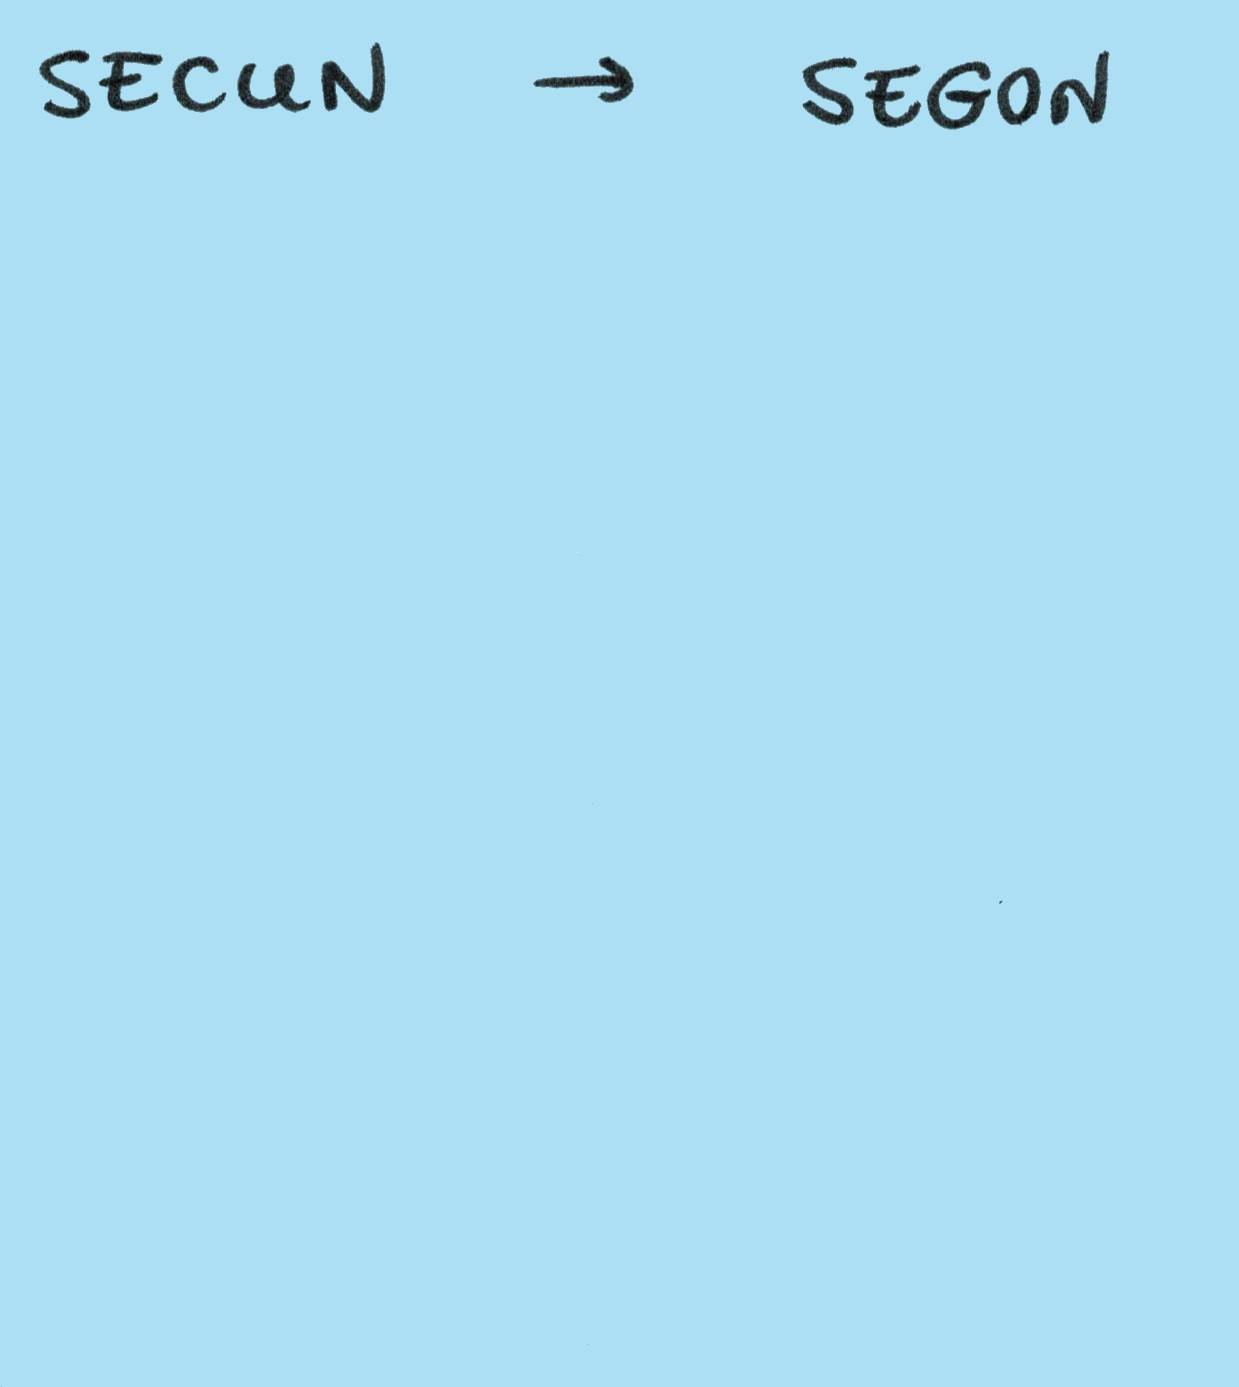 SECUN → SEGON